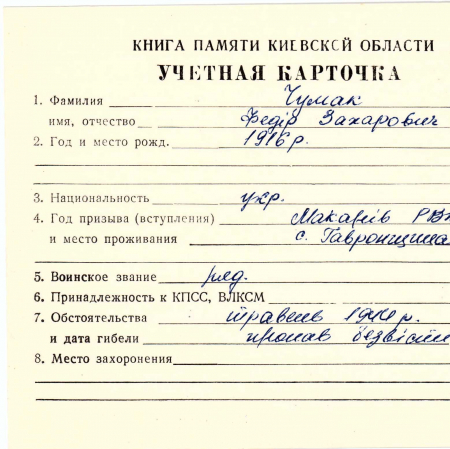 КНИГА ПАМЯТИ КИЕВСКОЙ ОБЛАСТИ
УЧЕТНАЯ КАРТОЧКА
1. Фамилия Чумак
имя, отчество Федір Захарович
2. Год и место рожд. 1916 р.
3. Национальность укр.
4. Год призыва (вступления) Макарів РВ
и место проживания с. Гавронщина
5. Воинское звание ряд.
6. Принадлежность к КПСС, ВЛКСМ
7. Обстоятельства травень 1944 р.
и дата гибели пропав безвісти
8. Место захоронения